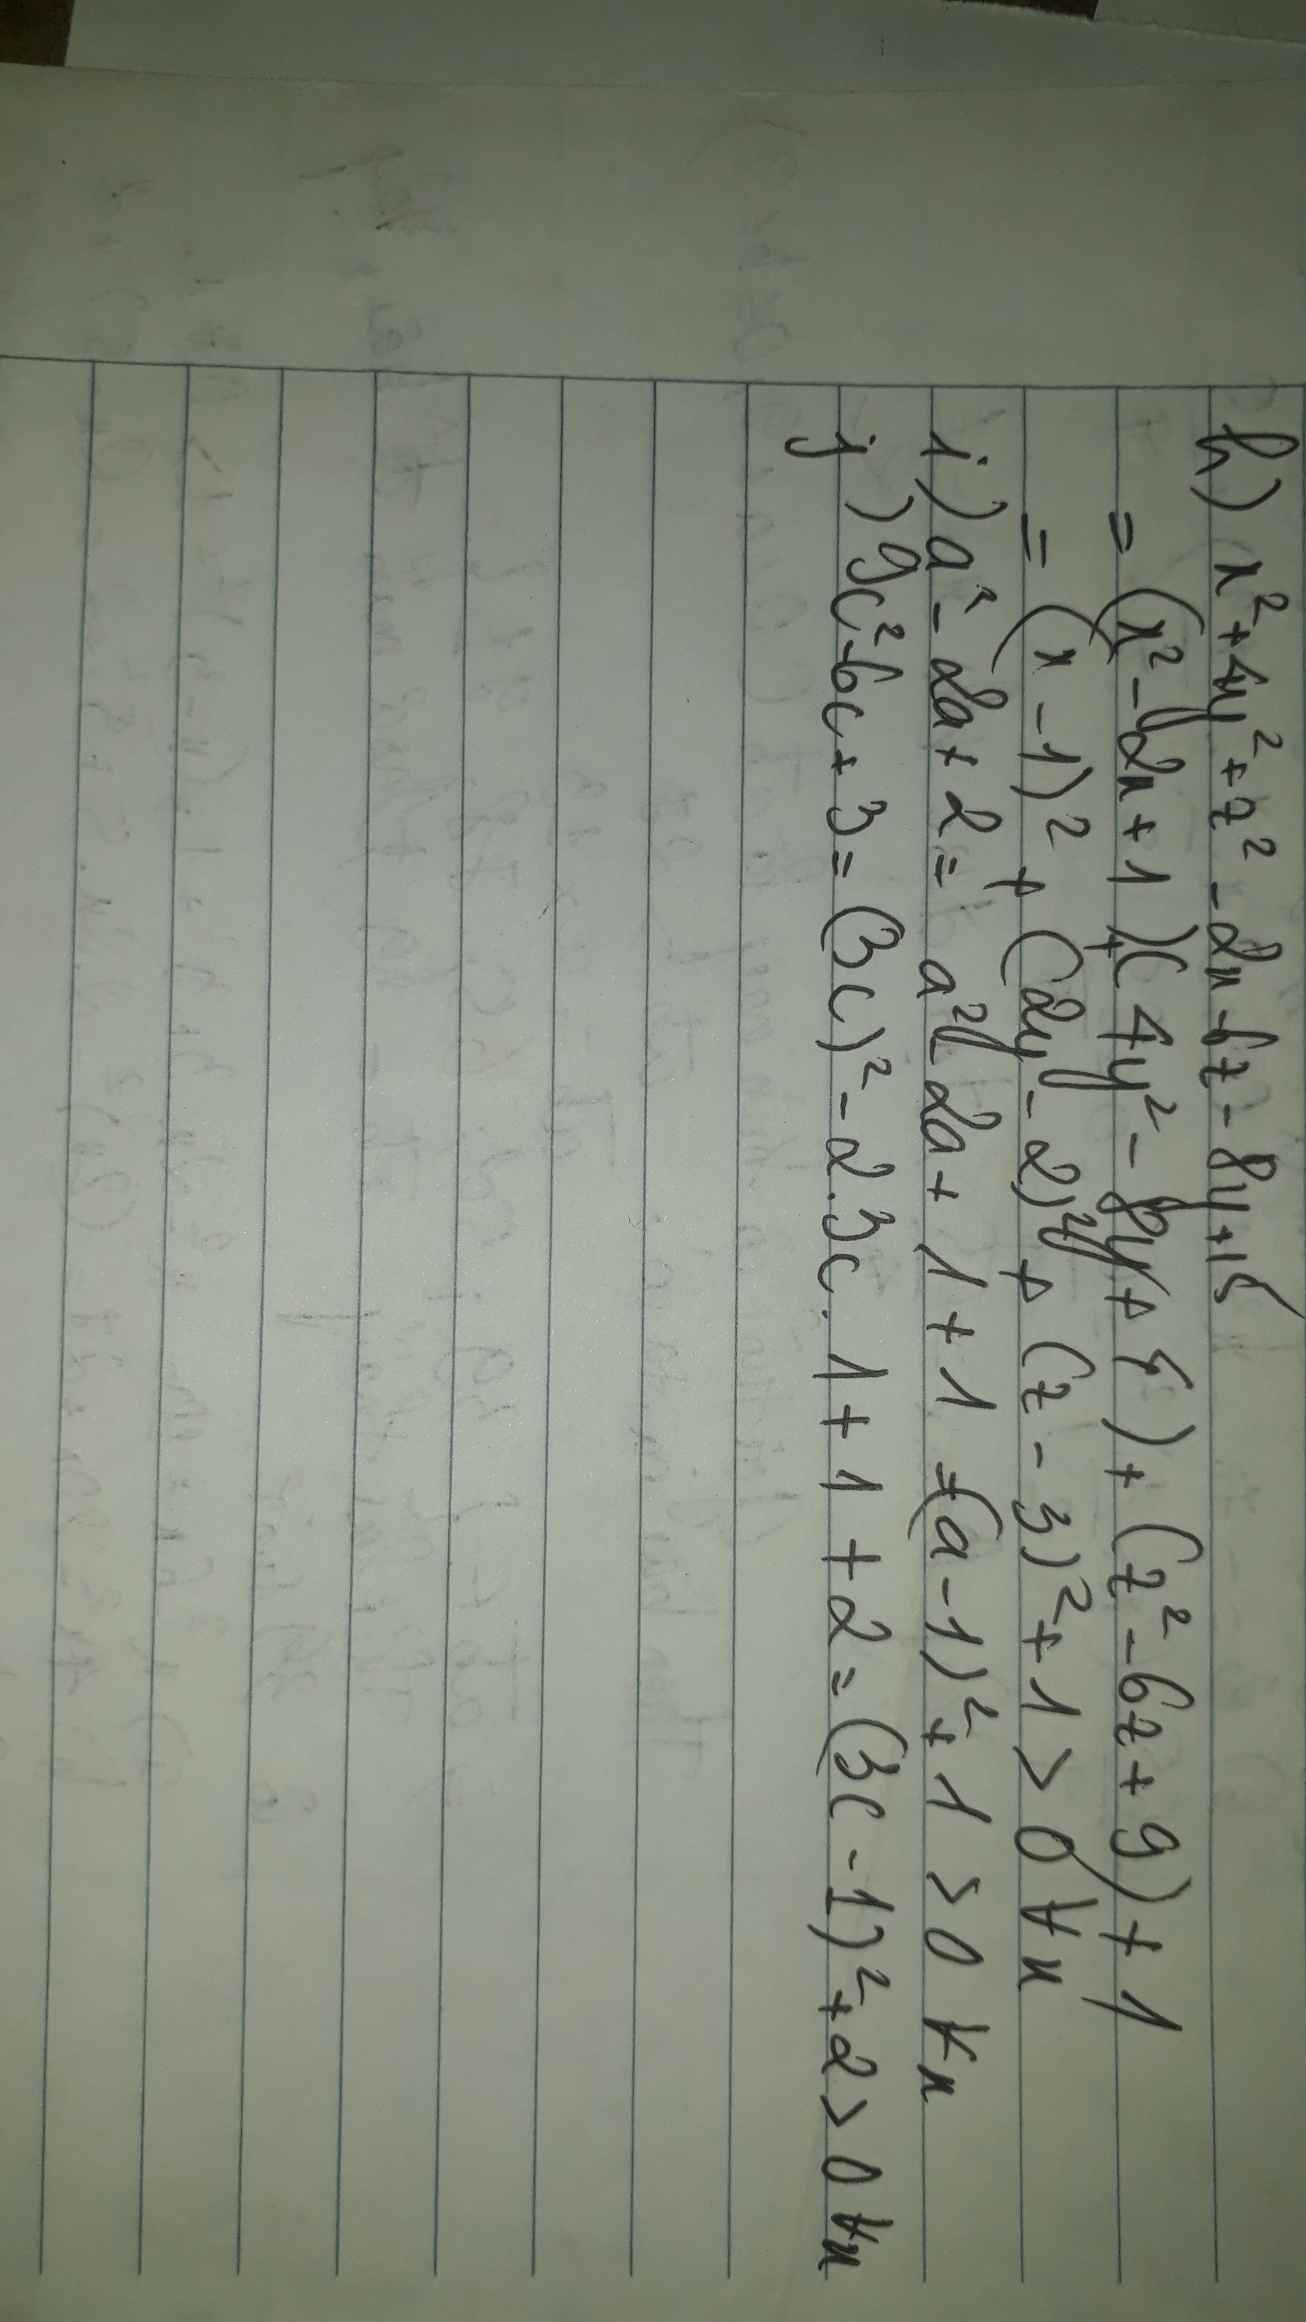 h) x² + 4y² + z² - 2x - 6z - 8y + 15
= (x² - 2x + 1) + (4y² - 8y + 4) + (z² - 6z + 9) + 1
= (x - 1)² + (2y - 2)² + (z - 3)² + 1 > 0 ∀x
i) a² - 2a + 2 = a² - 2a + 1 + 1 = (a - 1)² + 1 > 0 ∀x
j) 9c² - 6c + 3 = (3c)² - 2.3c.1 + 1 + 2 = (3c - 1)² + 2 > 0 ∀x